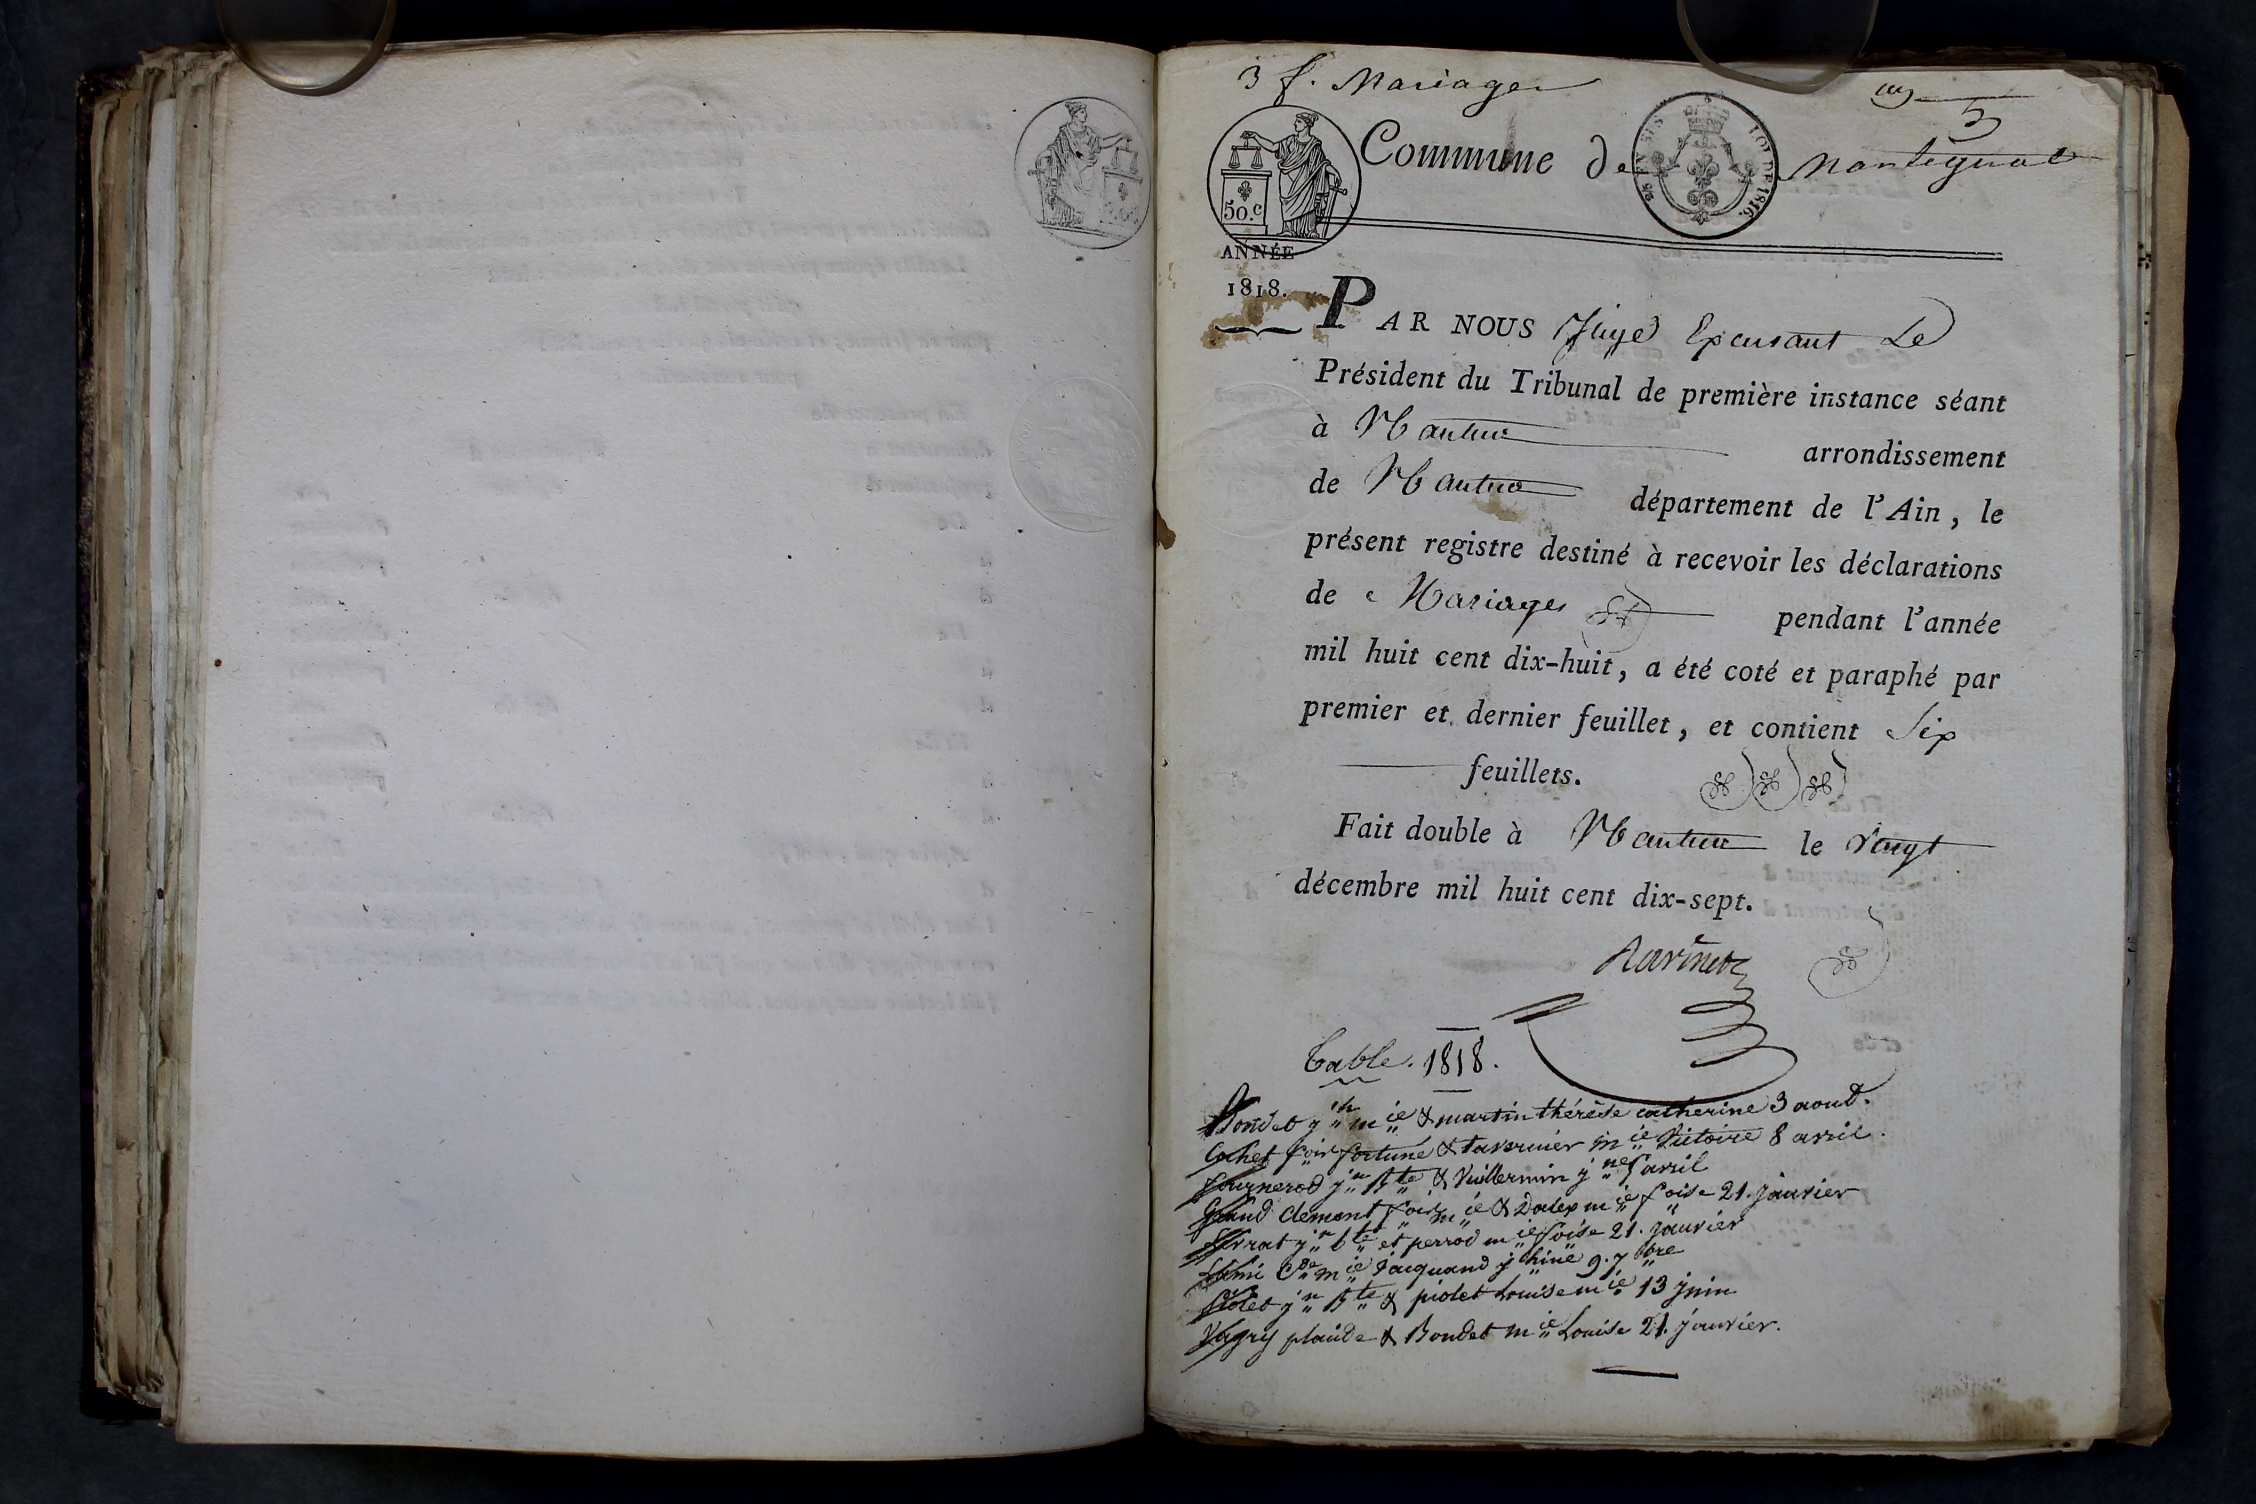 3 f. Mariages
Commune de Martignat
50.c
LOI DE 1816.
ANNÉE
1818.
PAR NOUS Juge Expensant Le
Président du Tribunal de première instance séant
à Nantua arrondissement
de Nantua département de l'Ain, le
présent registre destiné à recevoir les déclarations
de Mariages pendant l'année
mil huit cent dix-huit, a été coté et paraphé par
premier et dernier feuillet, et contient Six
feuillets.
Fait double à Nantua le vingt
décembre mil huit cent dix-sept.
Table. 1818.
Bondet jh mie & martin thérèse catherine 3 aoud.
Cochet fois fortuné & tavernier mie Victoire 8 avril.
fournerod jn Bte & Vuillermin jne avril
Grand clement fois mie & Dalex mie foise 21. janvier
jn bte et perrod mie foise 21. janvier
Lami Cde mie Jacquand jhine 9. 7bre
piolet jn Bte & piolet Louise mie 13 juin
plaide & Bondet mie Louise 21. janvier.